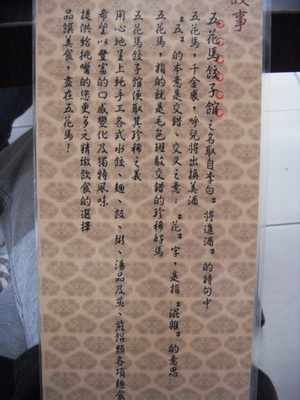 故事
五花馬餃子館之名取自李白〝將進酒〞的詩句中
五花馬,千金裘,呼兒將出換美酒
〝五〞的本意是交錯、交叉之意;〝花〞字,是指〝混雜〞的意思
五花馬,指的就是毛色斑駁交錯的珍稀好馬
五花馬餃子館便取其珍稀之義
用心地呈上純手工各式水餃、麵、飯、粥、湯品及蒸、煎餅類各項麵食
希望以豐富的口感變化及獨特風味
提供給挑嘴的您更多元精緻飲食的選擇
品饌美食,盡在五花馬!